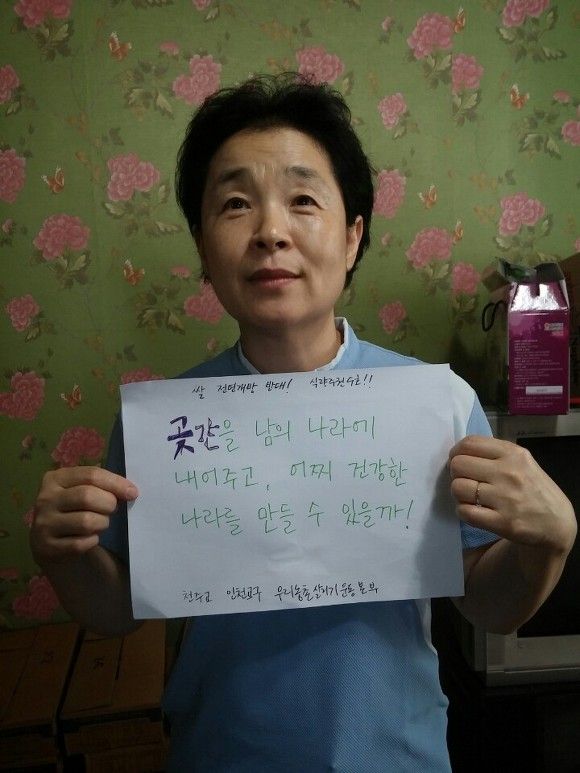 쌀 전면개방 반대! 식량주권 수호!!
곳간을 남의 나라에
내어주고, 어찌 건강한
나라를 만들 수 있을까!
천주교 인천교구 우리농촌살리기운동본부